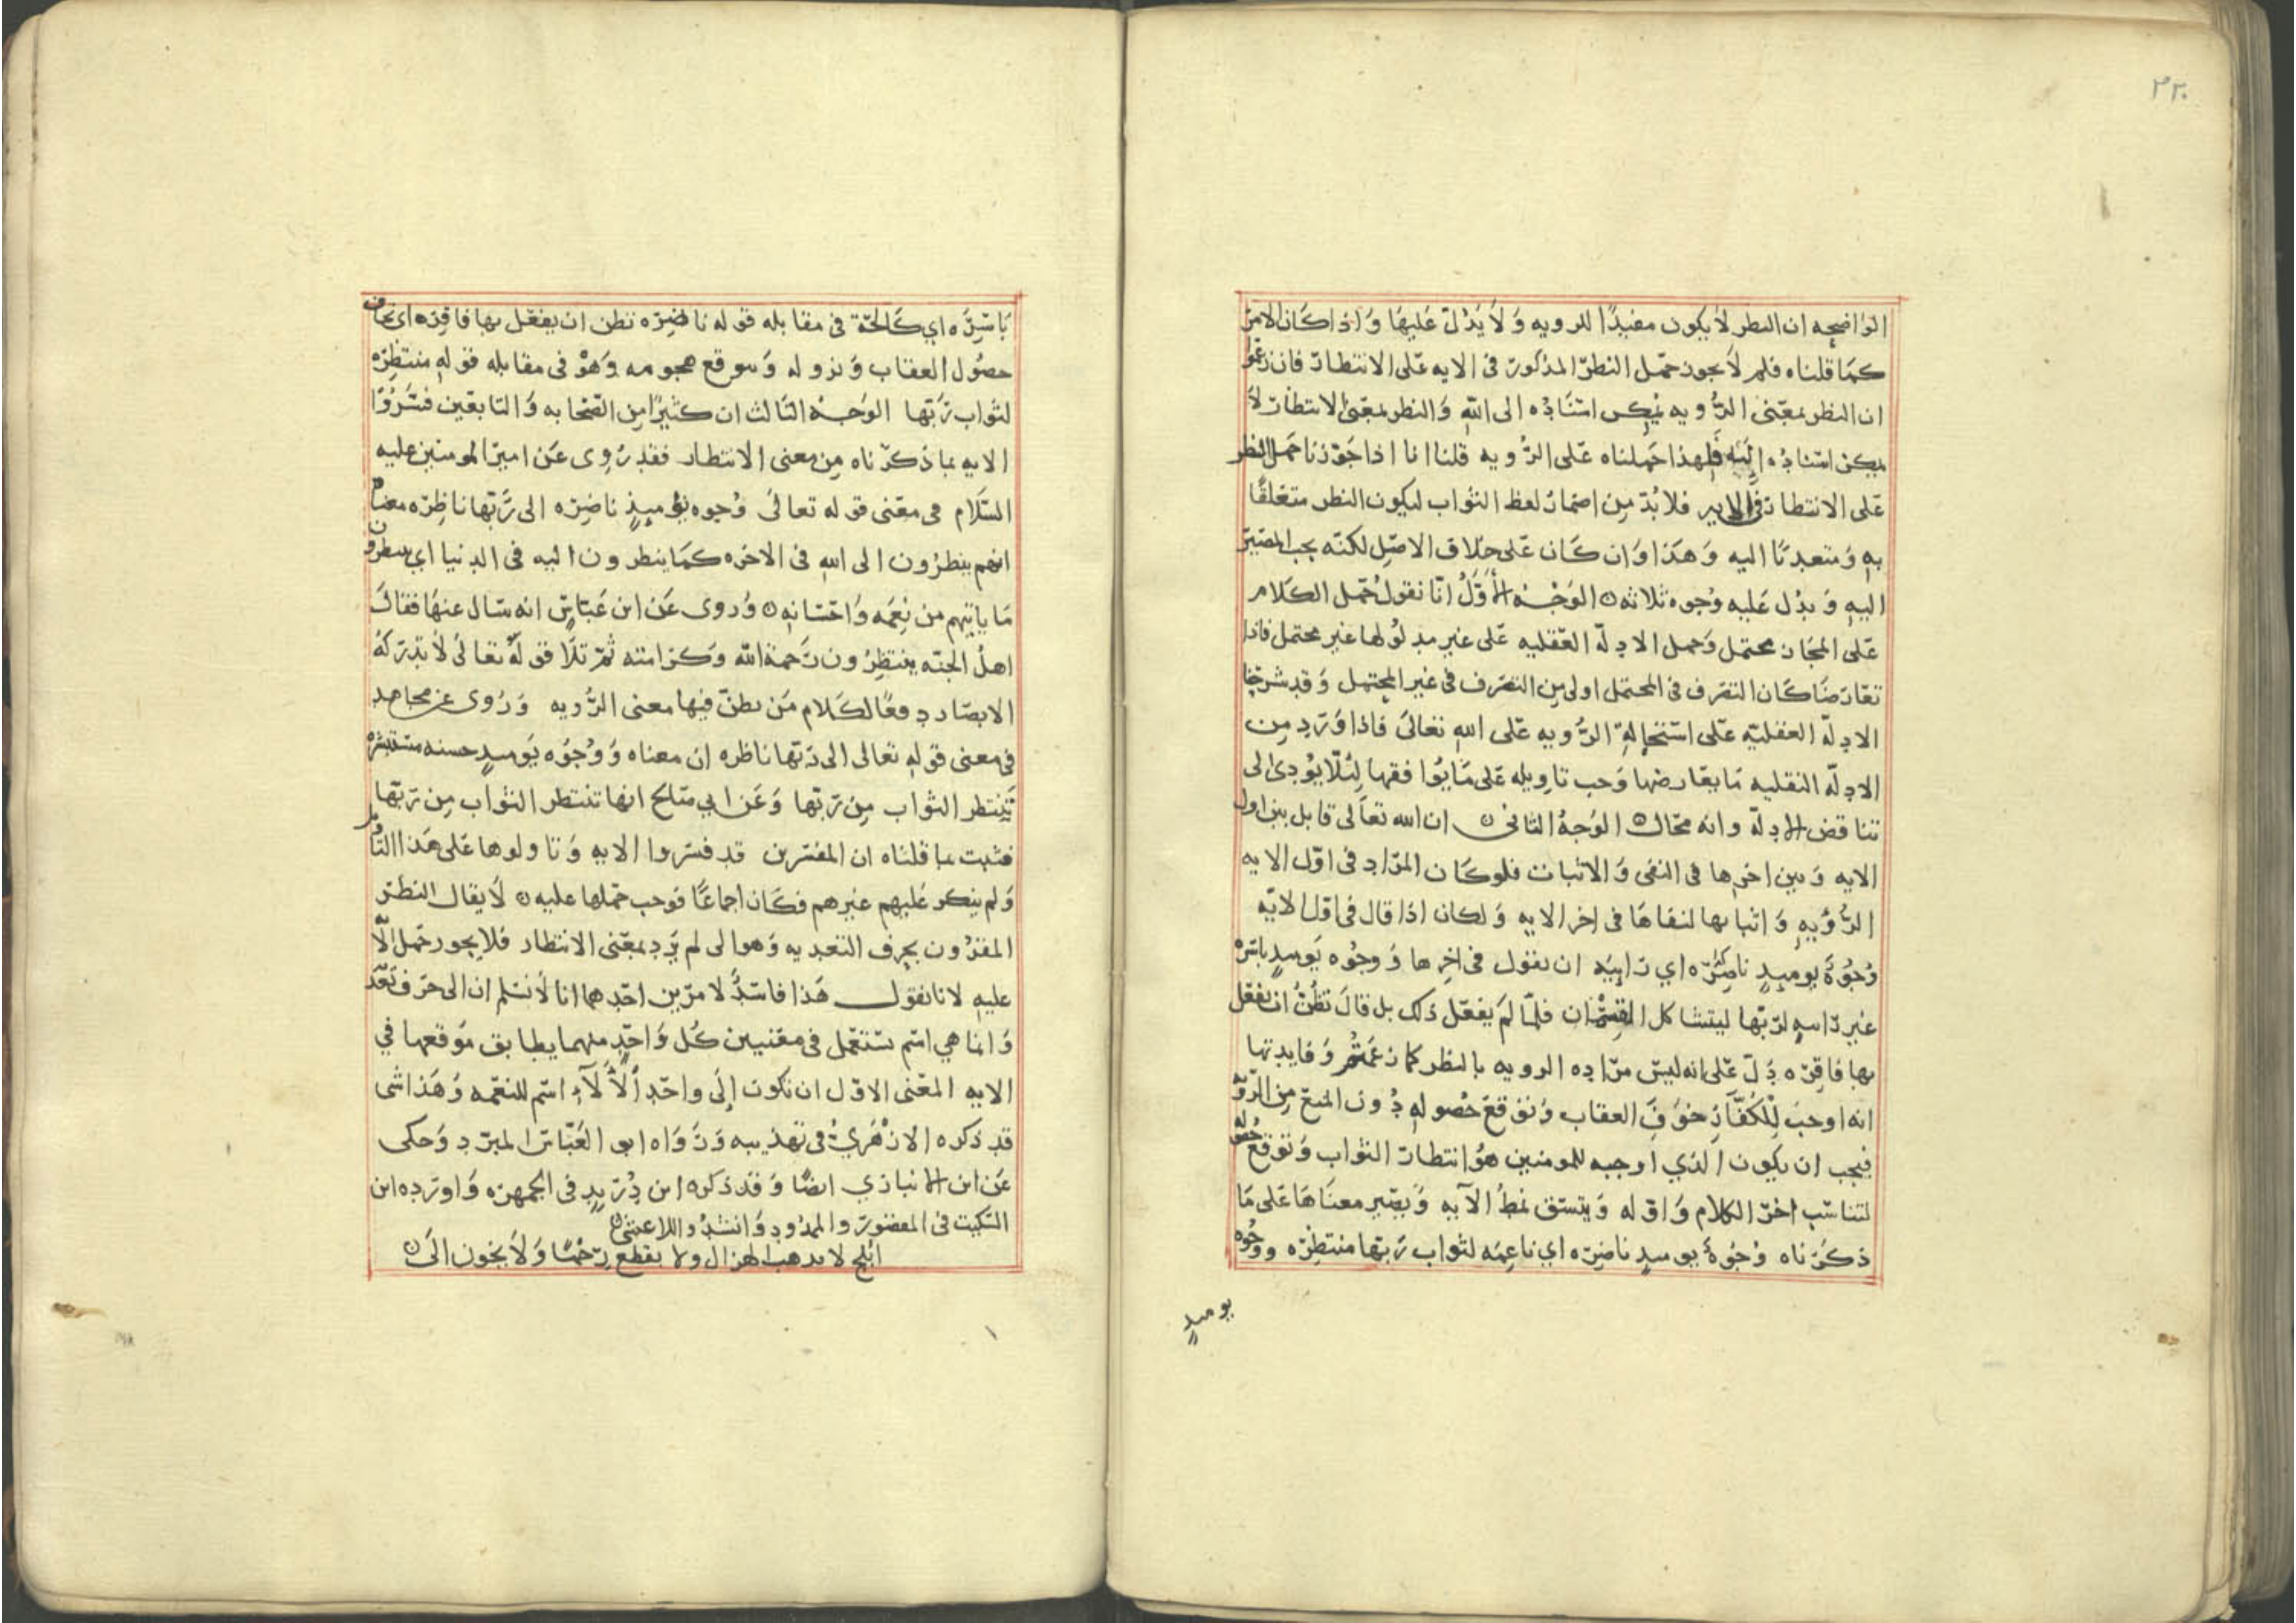 ٢٢٠
الواضحه ان النظر لا يكون مفيدًا للرويه وَلَا يَدُلّ عَليهَا وَاذا كان الامر
كمَا قلناه فلم لا يجوز حمل النظر المذكور فى الايه على الانتظار فان زعموا
ان النظر بمعنى الرُّويه يمكن اسْنَادُه الى الله وَالنظر بمعنى الانتظار لا
يمكن اسنادُه إليه فلهذا حَملناه عَلى الرُّويه قلنا انا اذا جَوّزنا حمل النظر
عَلى الانتظار فى الايه فلا بُدّ مِن اضمار لفظ الثواب ليكون النظر متعلقًا
به وَمتعديًا اليه وَهَذا وَان كَان عَلى خلاف الاصْل لكنّه يجب المصَير
اليهِ وَيدُل عَليه وُجوه ثلاثه الوَجْهُ الأوَّلُ انّا نقول حمل الكلام
عَلى المجَاز محتمل وَحمل الادلّه العَقليه عَلى غير مدلولها غير محتمل فاذا
تعَارضَا كَان التصَرف فى المحتمل اولى من التصَرف فى غير المحتمل وَقد شرحنا
الادلّه العَقليّه عَلى اسْتحالةِ الرُّويه عَلى الله تعَالىَ فاذا وَرَد مِن
الادلّه النقليه مَا يعَارضهَا وَجب تاويله عَلى مَا يُوافقهَا لِئلّا يُودى الى
تناقض الادلّه وانه محَال الوَجهُ الثانى ان الله تعَالى قابل بين اول
الايه وَبين اخرِها فى النفى وَالاثبات فلو كَان المرَاد فى اوّل الايه
الرُّؤيهِ وَاثباتها لنفاهَا فى اخر الايه وَلكان اذا قال فى اوّل الايّه
وُجُوهٌ يومَيِذٍ ناضِرَه اي رَاييَه ان يقول فى اخِرِها وَوُجوُه يَوميذٍ باسَره
غير رَاييه لرَبّها ليتشاكل القِسْمَان فلمّا لم يَفعَل ذلك بل قال تظُنُّ ان يفعَل
بها فاقِرَه دَلّ عَلى انه ليسَ مرَاده الرويه بالنظر كما زعمتُم وَفايدتها
انه اوجبَ لِلْكُفَّارِ خوَفَ العقاب وَتوَقعَ حُصولهِ دُون المنع مِن الرّوَ
فيجب ان يكون الذي اوجبه للمومنين هوُ انتظار الثواب وَتوَقع حُصوله
لتناسَب اخرُ الكلام وَاوّله وَيتّسق نمطُ الآيه وَيصَير معنَاهَا عَلى مَا
ذكرْناه وُجوُهٌ يوميذٍ ناضِرَه اي ناعِمَه لثواب رَبّها منتظِرَه ووُجُوه
يوميذٍ
بَاسِرَه اي كَالحَة فى مقابله قوله ناضِرَه تظن ان يفعَل بها فاقِرَه اى تخاف
حصُول العقاب وَنزوله وَتتوقع هجومه وَهوْ فى مقابله قوله منتظِرَه
لثواب رَبّها الوَجهْ الثَالث ان كثيرًا مِن الصّحَابه وَالتابعَين فسَّرُوا
الايه بما ذكرناه مِن معنى الانتظار فقد رُوِى عَن امير المومنين عليه
السّلام فى معَنى قوله تعالىَ وُجوه يوميذٍ ناضِرَه الى رَبّها ناظِرَه معناه
انهم ينظرُون الى الله فى الاخرَه كمَا ينظرون اليه فى الدنيا اي ينتظرون
مَا ياتيهم من نِعَمَه وَاحَسَانه وَروى عَن ابن عَبّاسٍ انه سَال عنهَا فقال
اهلُ الجنّه ينتظِرُون رَحمة الله وَكرَامته ثمّ تلَا قوْلهُ تعَالىَ لَا تُدركهُ
الابصَار دفعًا لكَلام مَن يظنّ فيها معنى الرُّويه وَرُوى عن مجاهد
فى معنى قوله تعالى الى رَبّها ناظره ان معناه وَوُجُوه يَوميذٍ حسنه مستبشره
تَنتظر الثواب مِن رَبّها وَعَن ابي صَالح انها تنتظر الثوَاب مِن رَبّها
فثبت بما قلناه ان المفسّرين قد فسَروا الايه وَتاولوها عَلى هَذا التاويل
وَلم ينكر عَليهم غيرهم فكَان اجماعًا فوَجب حَملها عليه لَا يقال النظر
المقرُون بحرف التعديه وَهو الى لم يَرد بمعَنى الانتظار فلا يجوز حَمل الآيه
عليه لانا نقول هَذا فاسَدٌ لامرَين احَدهما انا لَا نسَلم ان الى حرف تعَدٍّ
وَانما هي اسْم تستعَمل فى معَنيين كُل وَاحَدٍ منهما يطابق مَوقعها في
الايه المعَنى الاوّل ان تكون إلَى واحَد ألآلَآءِ اسَم للنعَمه وَهَذا شى
قد ذكره الازْهَريُّ فى تهذيبه وَرَوَاه ابو العَبّاسَ المبرّد وَحكى
عَن ابن الانباري ايضًا وَقد ذكره ابن دُرَيدٍ فى الجمهره وَاورَده ابن
السّكيت فى المقصور والممدُود وَانشدُوا للاعَشى
ابْلج لا يرهب الهزال ولا يقطع رِحْمًا وَلَا يخون الَىَ